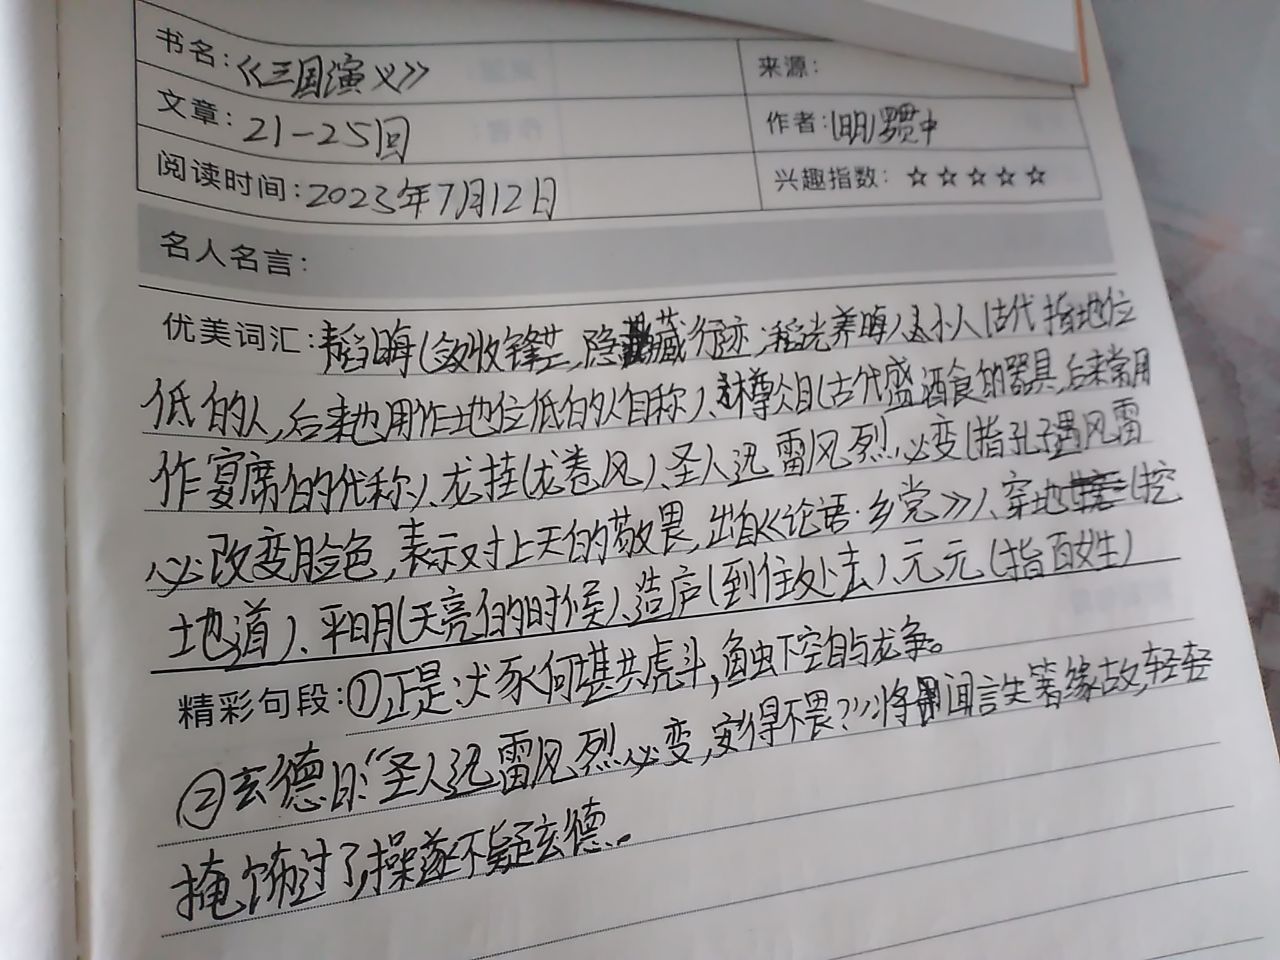 书名:《三国演义》
来源:
文章:21-25回
作者:(明)罗贯中
阅读时间:2023年7月12日
兴趣指数: ☆☆☆☆☆
名人名言:
优美词汇:韬晦(敛收锋芒,隐藏行迹,韬光养晦)、小人(古代指地位
低的人,后来也用作地位低的人自称)、樽俎(古代盛酒食的器具,后来常用
作宴席的代称)、龙挂(龙卷风)、圣人迅雷风烈必变(指孔子遇风雷
必改变脸色,表示对上天的敬畏,出自《论语·乡党》)、穿地(挖
地道)、平明(天亮的时候)、造庐(到住处去)、元元(指百姓)
精彩句段:①正是:犬豕何堪共虎斗,鱼虾空自与龙争。
②玄德曰:“圣人迅雷风烈必变,安得不畏?”将闻言失箸缘故,轻轻
掩饰过了,操遂不疑玄德。